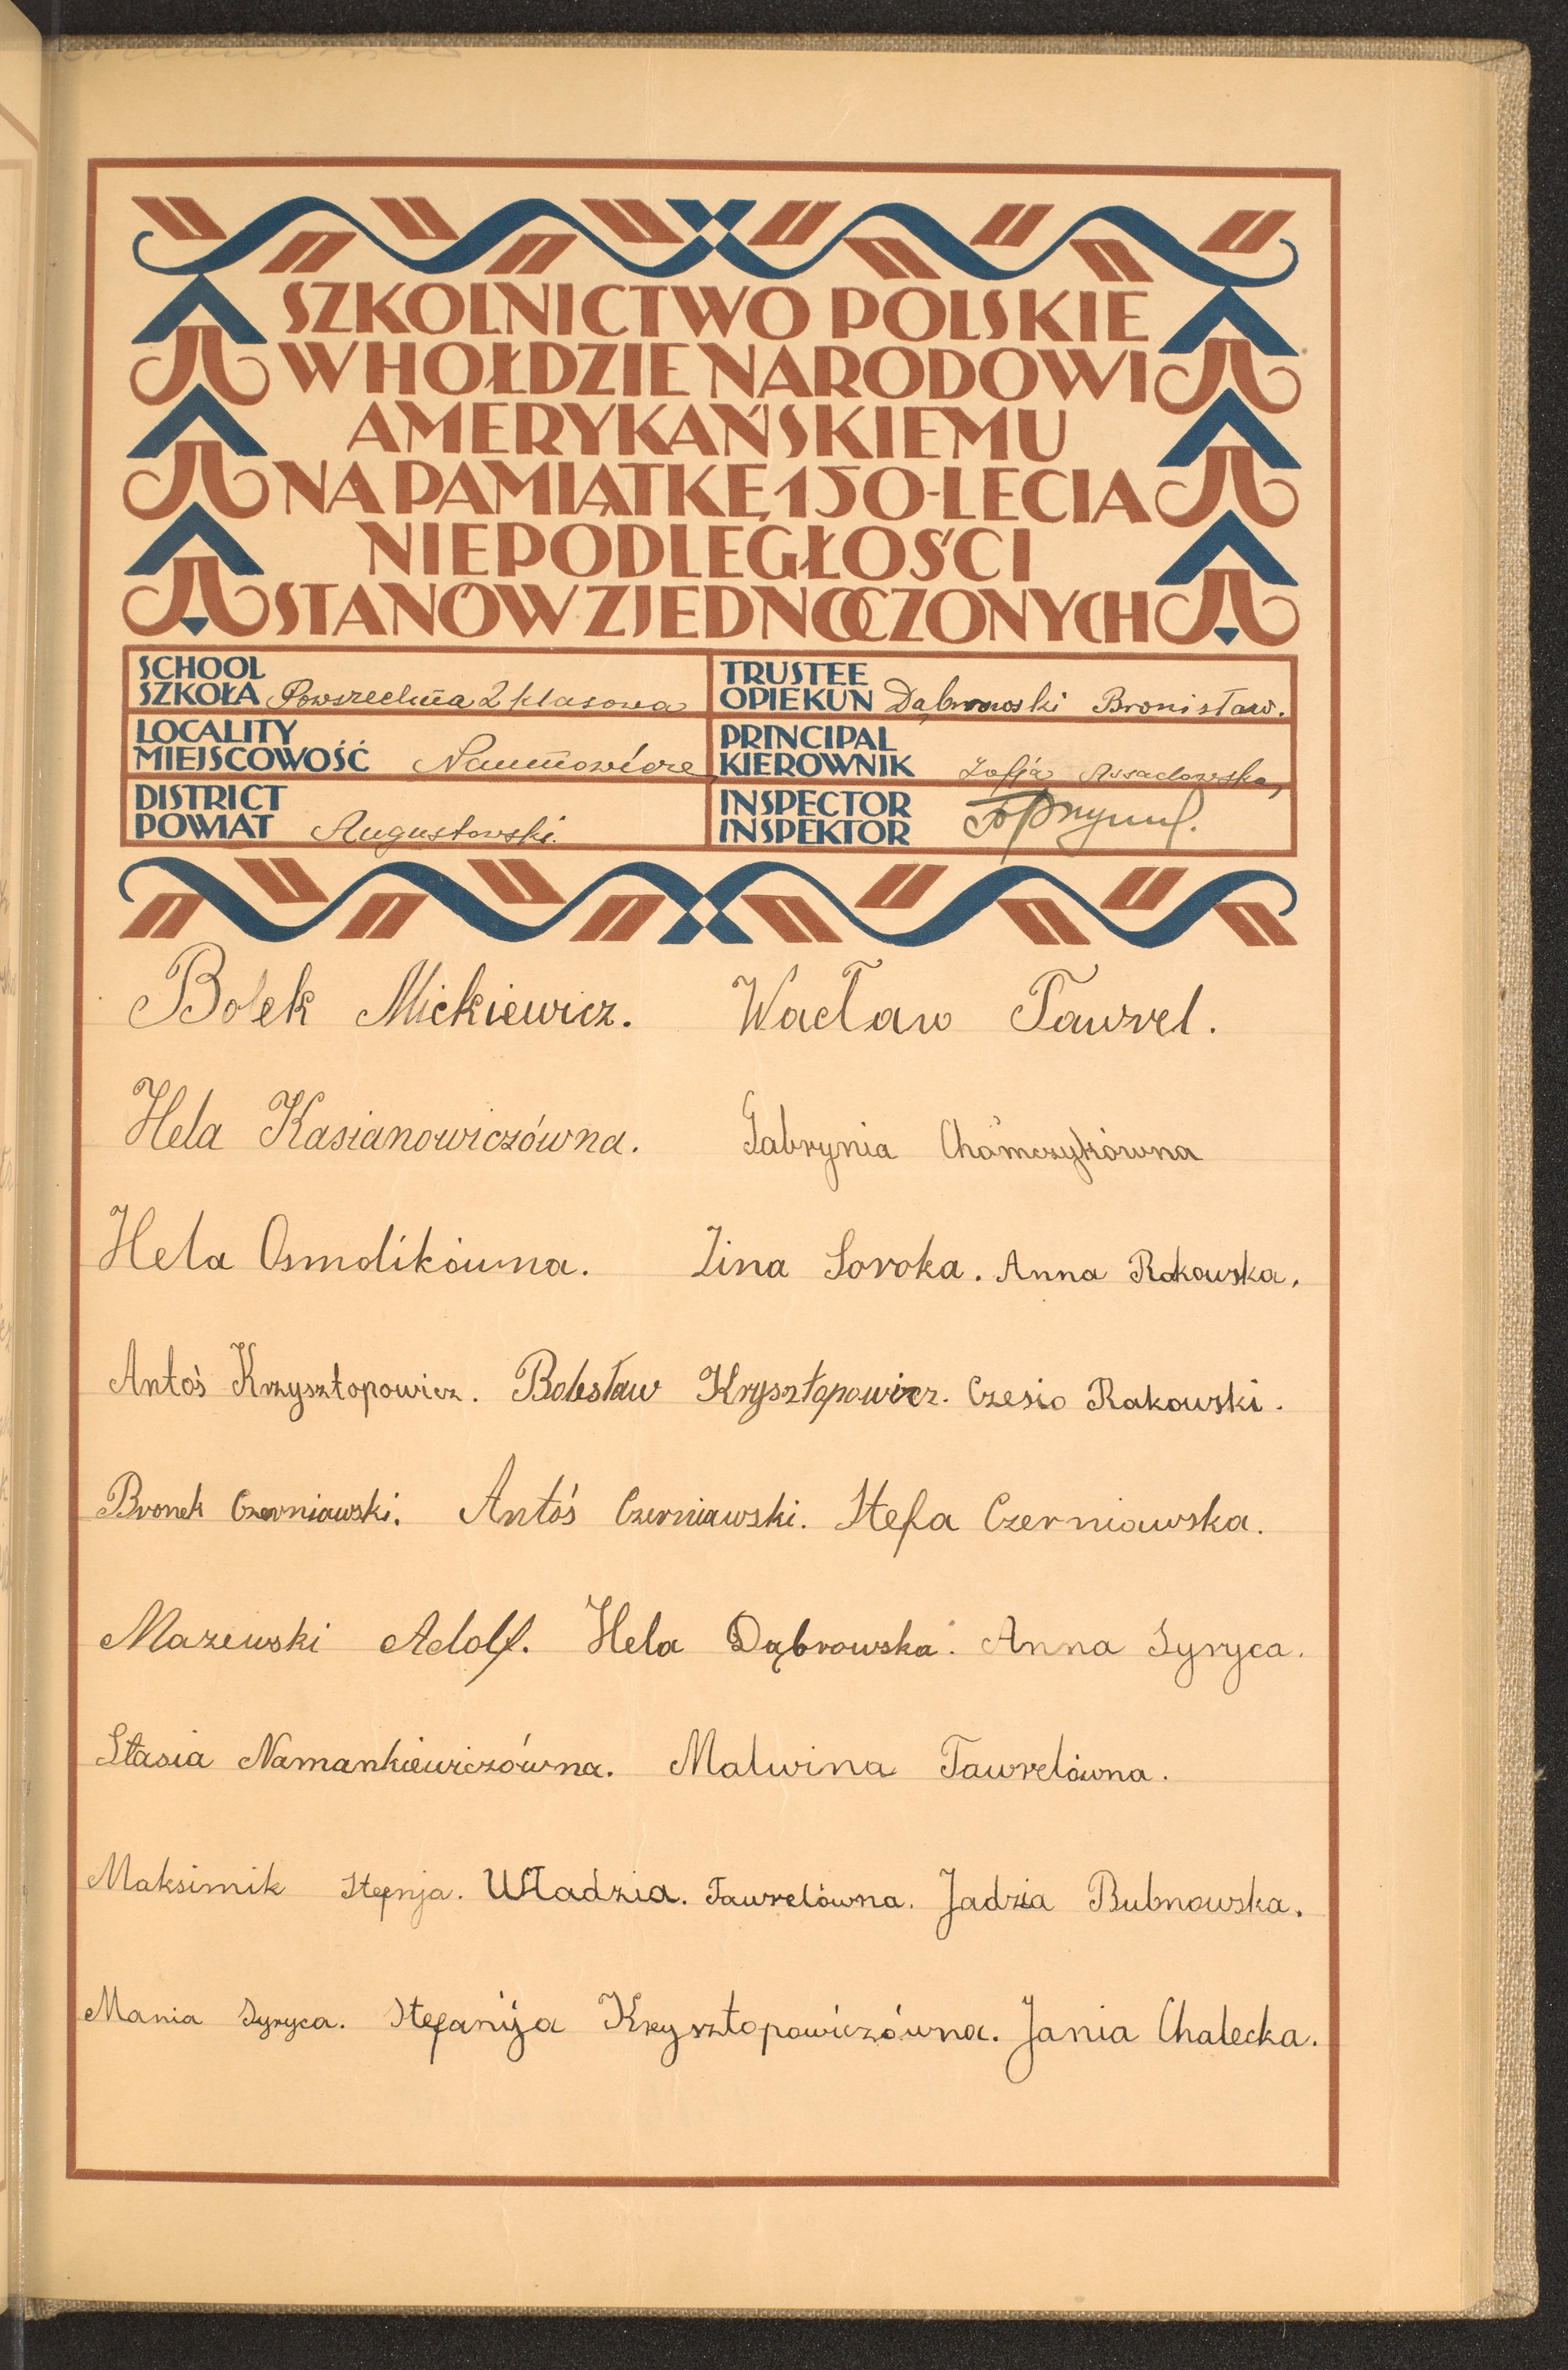 SZKOLNICTWO POLSKIE
W HOŁDZIE NARODOWI
AMERYKAŃSKIEMU
NA PAMIĄTKĘ 150-LECIA
NIEPODLEGŁOŚCI
STANÓW ZJEDNOCZONYCH
SCHOOL
SZKOŁA Powszechna 2 klasowa
TRUSTEE
OPIEKUN Dąbrowski Bronisław.
LOCALITY
MIEJSCOWOŚĆ Naumowicze
PRINCIPAL
KIEROWNIK Zofja Assadowska,
DISTRICT
POWIAT Augustowski.
INSPECTOR
INSPEKTOR
Bolek Mickiewicz. Wacław Tawrel.
Hela Kasianowiczówna. Gabrynia Chomczykówna
Hela Osmolikówna. Zina Soroka. Anna Rakowska.
Antoś Krzysztopowicz. Bolesław Krysztopowicz. Czesio Rakowski.
Bronek Czerniawski. Antoś Czerniawski. Stefa Czerniawska.
Mazewski Adolf. Hela Dąbrowska. Anna Syryca.
Stasia Namankiewiczówna. Malwina Tawrelówna.
Maksimik Stefnja. Władzia. Tawrelówna. Jadzia Bubnowska.
Mania Syryca. Stefanija Krysztopowiczówna. Jania Chalecka.